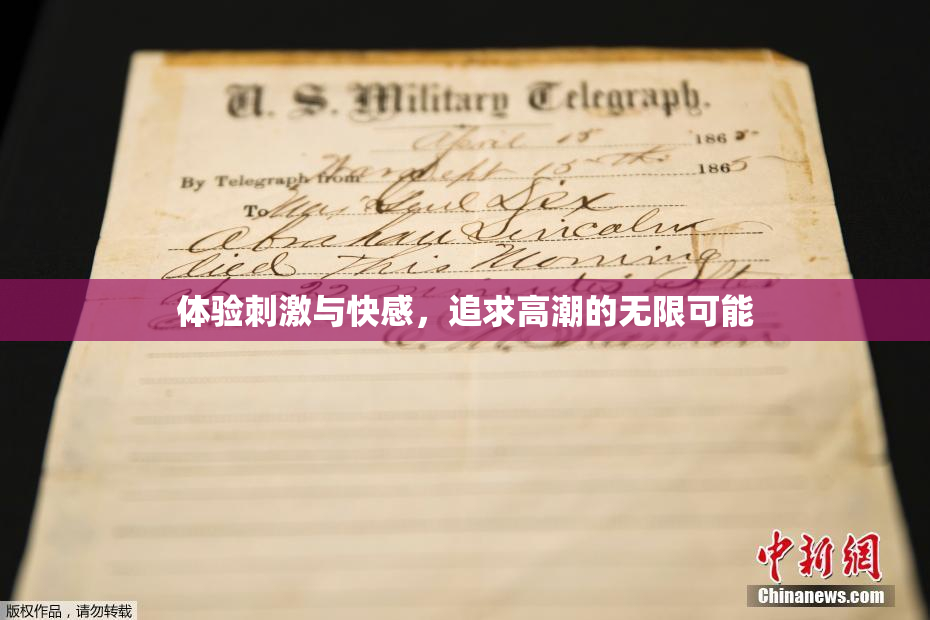 U. S. Military Telegraph.
April 15 1865
By Telegraph from War Dept 15th 1865
To Maj Genl Dix
Abraham Lincoln
died This Morning
22 minutes after
体验刺激与快感，追求高潮的无限可能
E. M. Stanton
中新网
Chinanews.com
版权作品，请勿转载